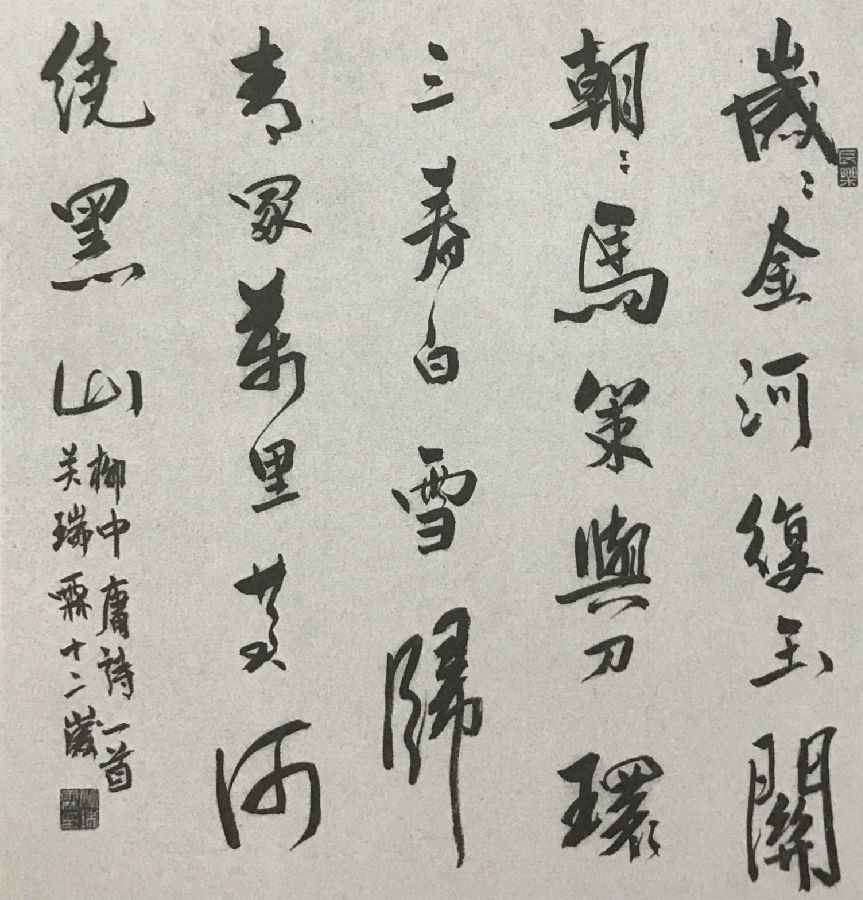 歲〻金河復玉關
朝〻馬策與刀環
三春白雪歸
青冢萬里黃河
繞黑山
柳中庸詩一首
关瑞霖十二歲